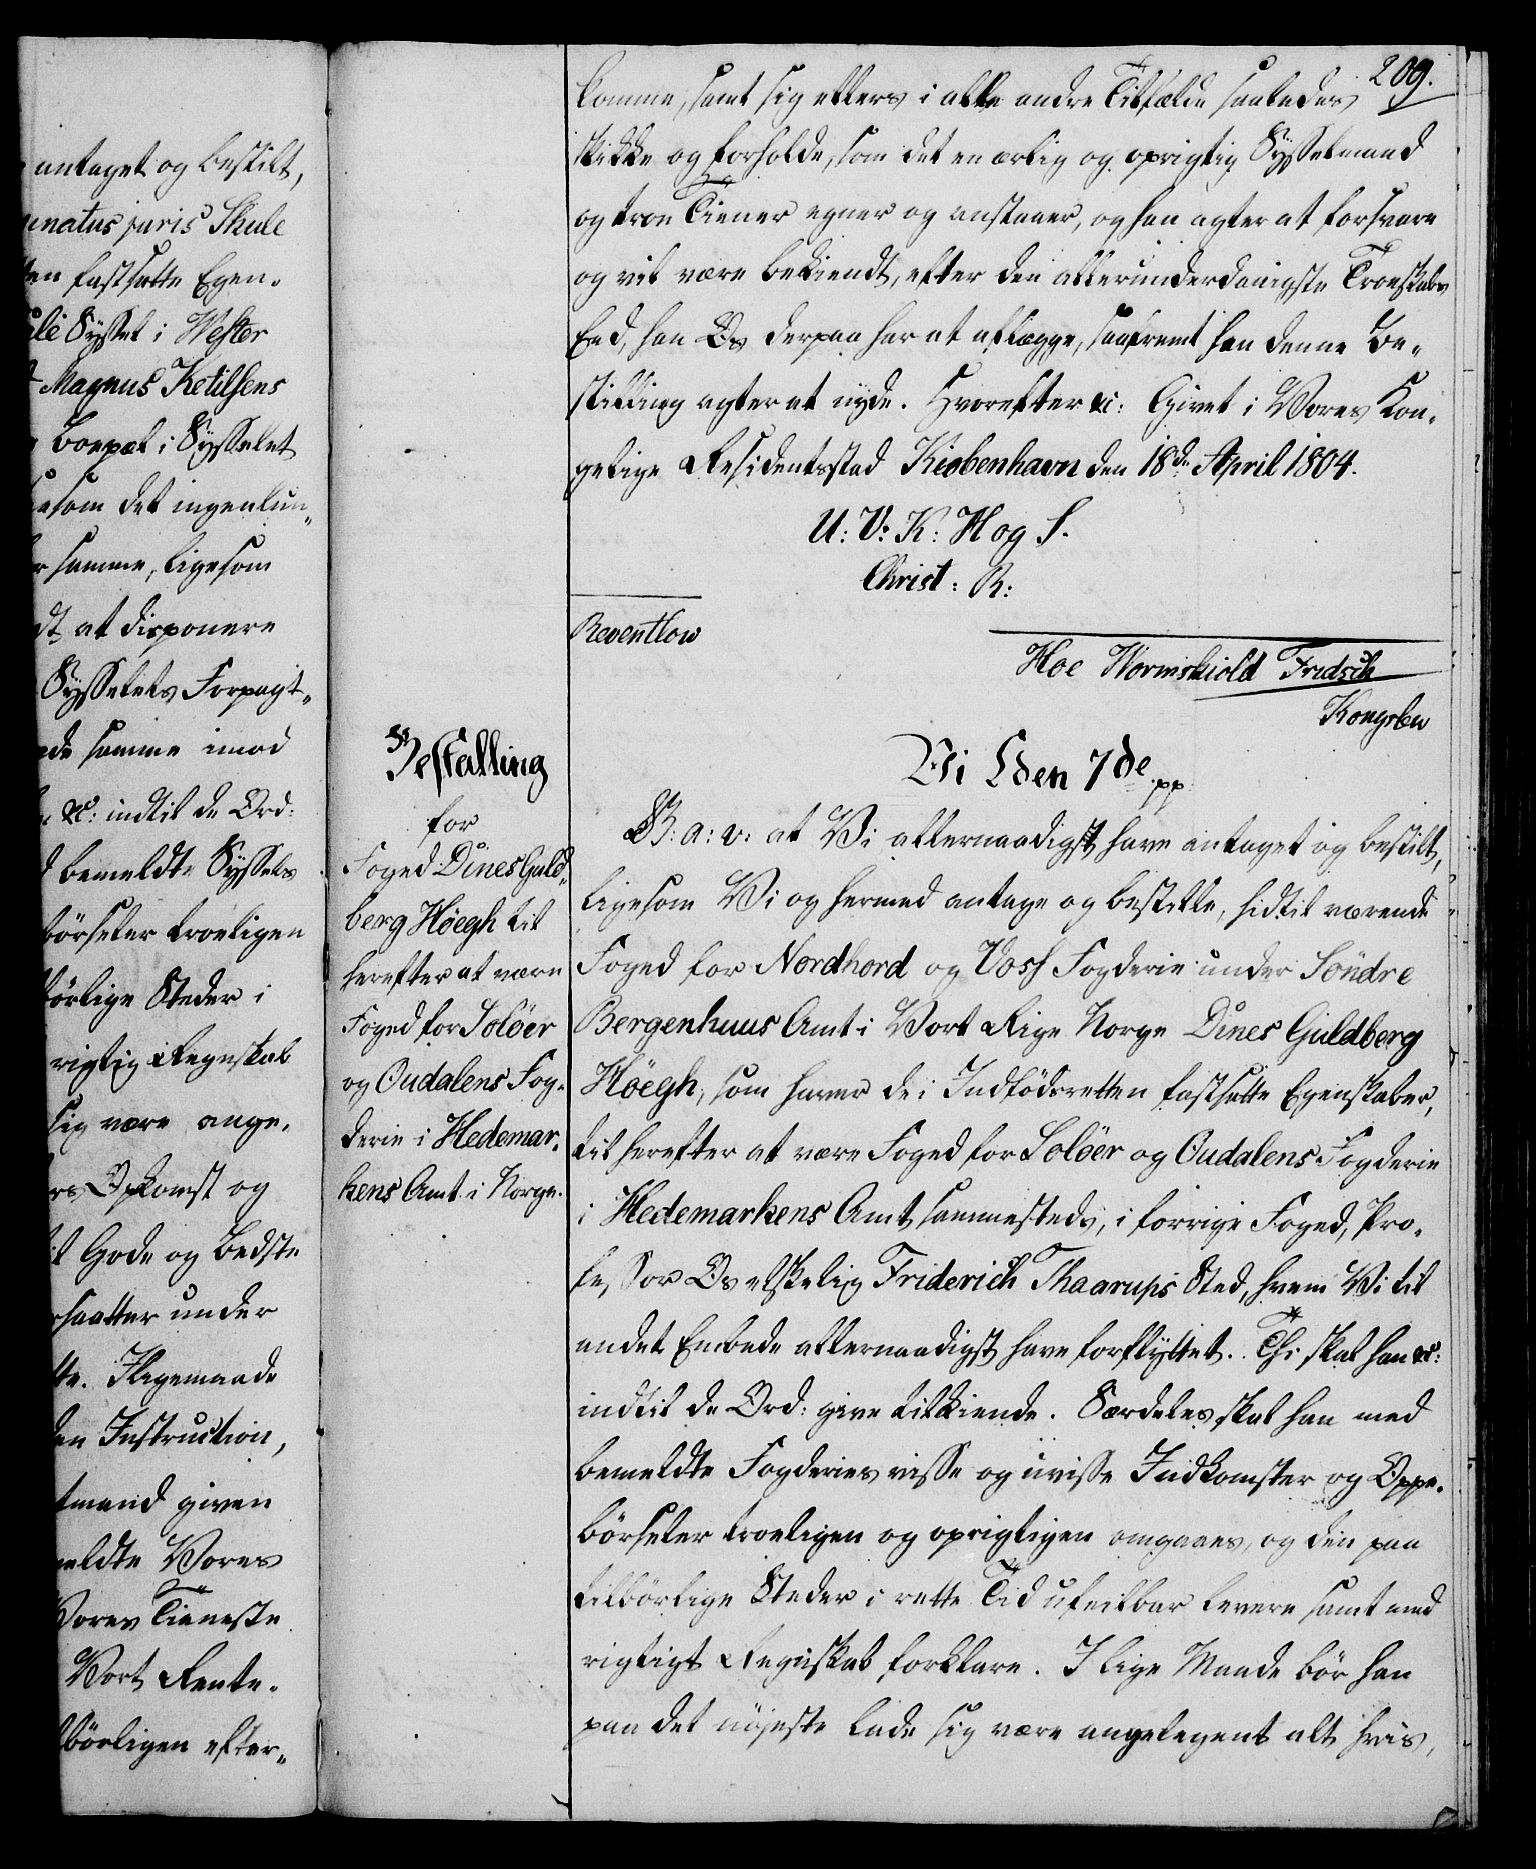 antaget og bestilt,
natus juris Skule
en fastsatte Egen-
Sysset i Wester
Magnus Ketilsens
Boepæl i Sysselet
som det ingenlun-
samme, ligesom
at disponere
Sysselets Forpagt-
samme imod
&c: indtil de Ord:
bemeldte Syssels
börseler troeligen
börlige Steder i
rigtig Regnskab
sig være ange-
Opkomst og
Gode og Bedste
saatter under
te. I ligemaade
den Instruction,
tmand given
meldte Vores
Vores Tieneste
Vort Rente-
börligen efter-
209.
komme, samt sig ellers i alle andre Tilfælde saaledes
skikke og forholde, som det en ærlig og oprigtig Sysselmand
og troe Tiener egner og anstaaer, og han agter at forsvare
og vil være bekiendt, efter den allerunderdanigste Troeskabs
Eed, han Os derpaa har at aflægge, saafremt han denne Be-
stilling agter at nyde. Hvorefter &c: Givet i Vores Kon-
gelige Residentsstad Kiøbenhavn den 18de April 1804.
U: V: K: H og S.
Christ: R:
Reventlow
Hoe Wormskiold Fridsch
Kongslew
Bestalling
for
Foged Dines Guld-
berg Höegh til
herefter at være
Foged for Solöer
og Oudalens Fog-
derie i Hedemar-
kens Amt i Norge.
Vi C den 7de pp
G: a: v: at Vi allernaadigst have antaget og bestilt,
ligesom Vi og hermed antage og bestille, hidtil værende
Foged for Nordhord og Voss Fogderie under Söndre
Bergenhuus Amt i Vort Rige Norge Dines Guldberg
Höegh, som haver de i Indfödsretten fastsatte Egenskaber,
til herefter at være Foged for Solöer og Oudalens Fogderie
i Hedemarkens Amt sammesteds, i forrige Foged, Pro-
fessor Os elskelig Friderich Thaarups Sted, hvem Vi til
andet Embede allernaadigst have forflyttet. Thi skal han &c:
indtil de Ord: give tilkiende. Særdeles skal han med
bemeldte Fogderies visse og uvisse Indkomster og Oppe-
börseler troeligen og oprigtigen omgaaes, og den paa
tilbörlige Steder i rette Tid ufeilbar levere samt med
rigtigt Regnskab forklare. I lige Maade bör han
paa det nöjeste lade sig være angelegent alt hvis,